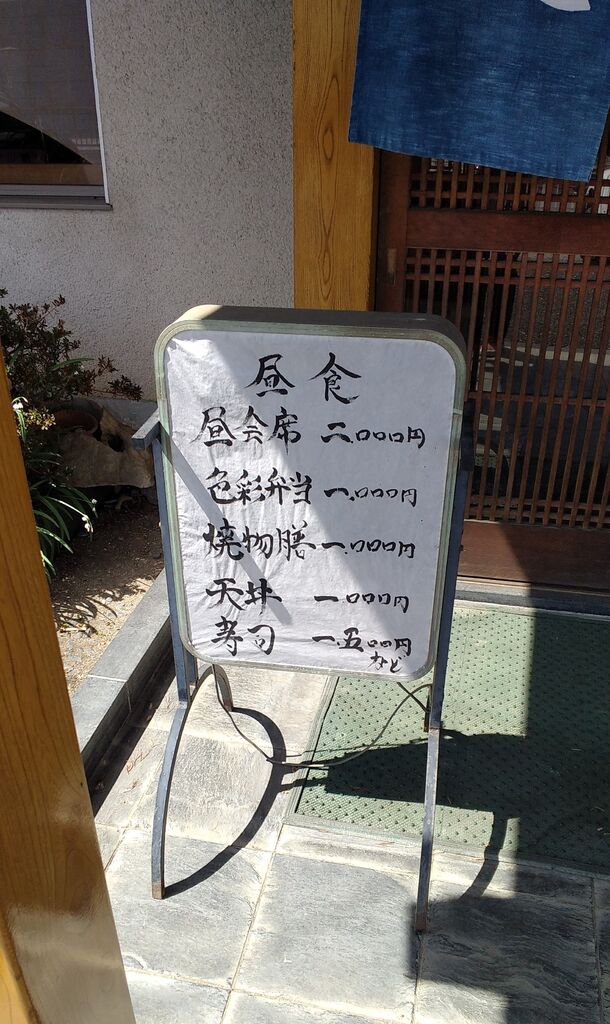 昼食
昼会席 二.〇〇〇円
色彩弁当 一.〇〇〇円
焼物膳 一.〇〇〇円
天丼 一.〇〇〇円
寿司 一.五〇〇円
など